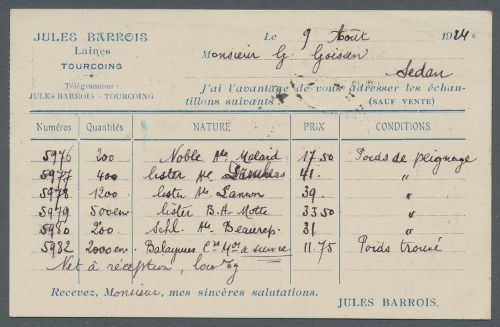 JULES BARROIS
Laines
TOURCOING
Télégrammes:
JULES BARROIS - TOURCOING
Le 9 Août 1924
Monsieur G. Goissen
Sedan
J'ai l'avantage de vous adresser les échan-
tillons suivants:
(SAUF VENTE)
Numéros Quantités NATURE PRIX CONDITIONS
5976 200 Noble 17.50 Poids de peignage
5977 400 lister 41. "
5978 1200 lister 39 "
5979 500 en lister B.A. Motte 33.50 "
5980 200 Schl. Beaurep. 31 "
5982 2000 en. Balayures à suivre 11.75 Poids trouvé
Net à réception,
Recevez, Monsieur, mes sincères salutations.
JULES BARROIS.